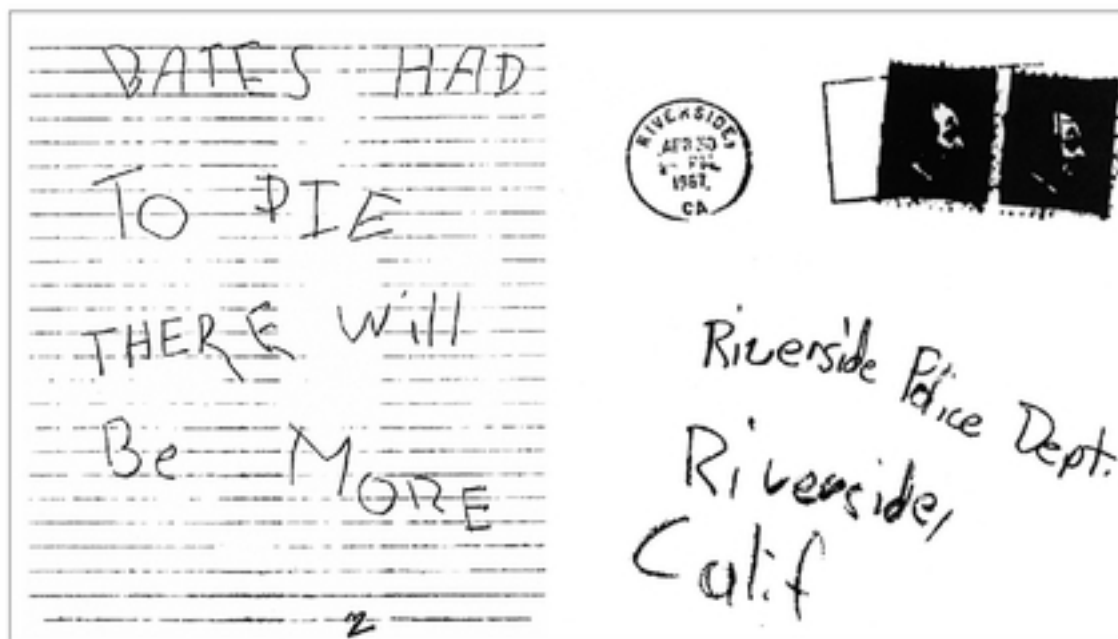 BATES HAD
TO DIE
THERE Will
Be MORE
2
RIVERSIDE,
APR 30
PM
1967
CA
Riverside Police Dept.
Riverside,
Calif